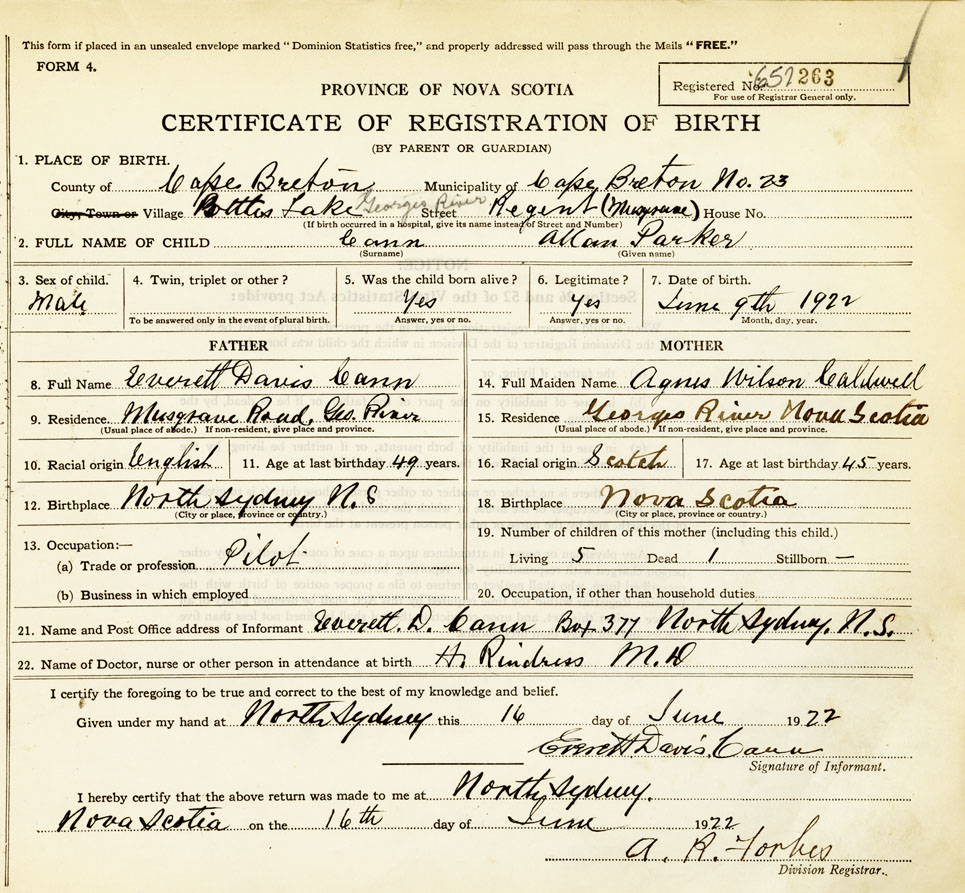 This form if placed in an unsealed envelope marked "Dominion Statistics free," and properly addressed will pass through the Mails "FREE."
FORM 4.
Registered No. 657263
For use of Registrar General only.
PROVINCE OF NOVA SCOTIA
CERTIFICATE OF REGISTRATION OF BIRTH
(BY PARENT OR GUARDIAN)
1. PLACE OF BIRTH.
County of Cape Breton Municipality of Cape Breton No. 23
City, Town or Village Pottles Lake Georges River Street Regent (Musgrave) House No.
(If birth occurred in a hospital, give its name instead of Street and Number)
2. FULL NAME OF CHILD Cann Allan Parker
(Surname) (Given name)
3. Sex of child. 4. Twin, triplet or other? 5. Was the child born alive? 6. Legitimate? 7. Date of birth.
Male Yes Yes June 9th 1922
To be answered only in the event of plural birth. Answer, yes or no. Answer, yes or no. Month, day, year.
FATHER MOTHER
8. Full Name Everett Davis Cann 14. Full Maiden Name Agnes Wilson Caldwell
9. Residence. Musgrave Road, Geo. River 15. Residence Georges River Nova Scotia
(Usual place of abode.) If non-resident, give place and province. (Usual place of abode.) If non-resident, give place and province.
10. Racial origin English 11. Age at last birthday 49 years. 16. Racial origin Scotch 17. Age at last birthday 45 years.
12. Birthplace North Sydney N.S 18. Birthplace Nova Scotia
(City or place, province or country.) (City or place, province or country.)
13. Occupation:— 19. Number of children of this mother (including this child.)
(a) Trade or profession Pilot Living 5 Dead 1 Stillborn —
(b) Business in which employed 20. Occupation, if other than household duties
21. Name and Post Office address of Informant Everett. D. Cann Box 377 North Sydney. N.S.
22. Name of Doctor, nurse or other person in attendance at birth H. Rindress M.D
I certify the foregoing to be true and correct to the best of my knowledge and belief.
Given under my hand at North Sydney this 16 day of June 1922
Everett Davis. Cann
Signature of Informant.
I hereby certify that the above return was made to me at North Sydney.
Nova Scotia on the 16th day of June 1922
A. R. Forbes
Division Registrar.